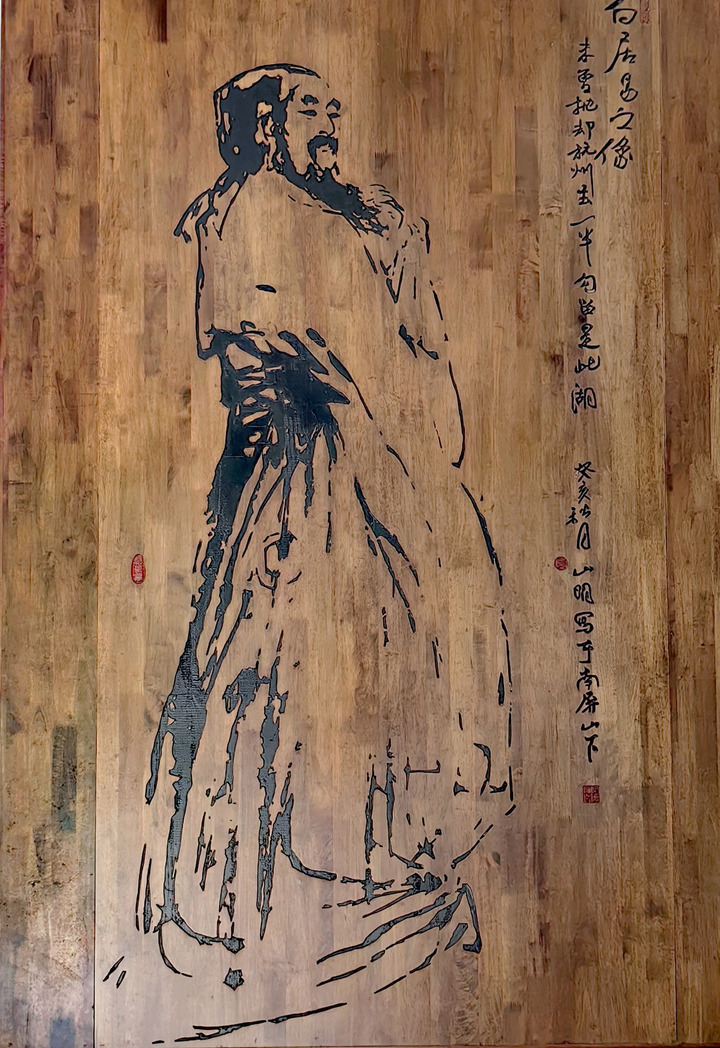 白居易之像
未曾抛却杭州去一半勾留是此湖
癸亥秋月山明写于南屏山下